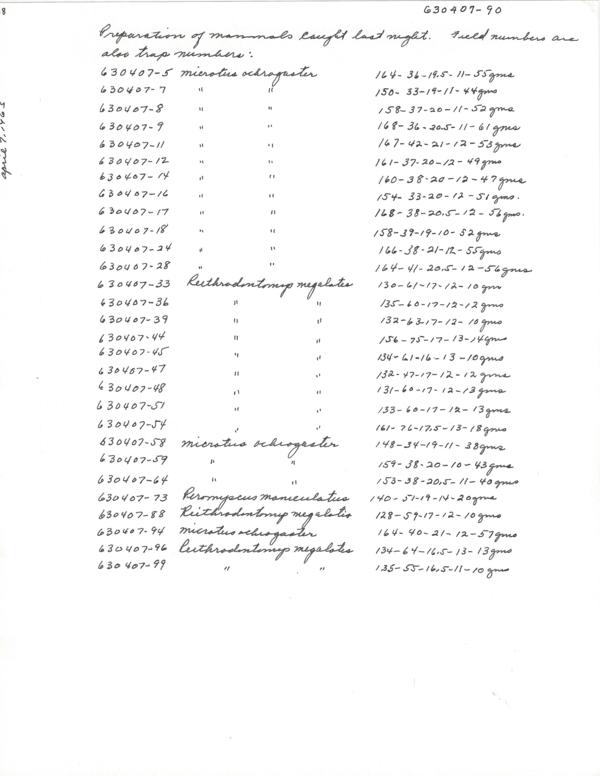 8
630407-90
april 7, 1963
Preparation of mammals caught last night. Field numbers are
also trap numbers:
630407-5 microtus ochrogaster 164-36-19.5-11-55gms
630407-7 " " 150-33-19-11-44gms
630407-8 " " 158-37-20-11-52gms
630407-9 " " 168-36-20.5-11-61gms
630407-11 " " 167-42-21-12-53gms
630407-12 " " 161-37-20-12-49gms
630407-14 " " 160-38-20-12-47gms
630407-16 " " 154-33-20-12-51gms.
630407-17 " " 168-38-20.5-12-56gms.
630407-18 " " 158-39-19-10-52gms
630407-24 " " 166-38-21-12-55gms
630407-28 " " 164-41-20.5-12-56gms
630407-33 Reithrodontomys megalotis 130-61-17-12-10gms
630407-36 " " 135-60-17-12-12gms
630407-39 " " 132-63-17-12-10gms
630407-44 " " 156-75-17-13-14gms
630407-45 " " 134-61-16-13-10gms
630407-47 " " 132-47-17-12-12gms
630407-48 " " 131-60-17-12-13gms
630407-51 " " 133-60-17-12-13gms
630407-54 " " 161-76-17.5-13-18gms
630407-58 microtus ochrogaster 148-34-19-11-38gms
630407-59 " " 159-38-20-10-43gms
630407-64 " " 153-38-20.5-11-40gms
630407-73 Peromyscus maniculatus 140-51-19-14-20gms
630407-88 Reithrodontomys megalotis 128-59-17-12-10gms
630407-94 microtus ochrogaster 164-40-21-12-57gms
630407-96 Reithrodontomys megalotis 134-64-16.5-13-13gms
630407-99 " " 135-55-16.5-11-10gms